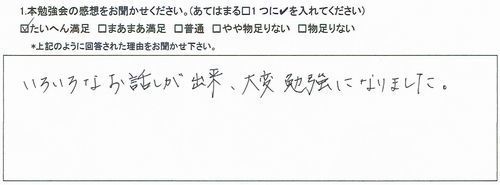 1.本勉強会の感想をお聞かせください。(あてはまる□1つに✔を入れてください)
☑たいへん満足 □まあまあ満足 □普通 □やや物足りない □物足りない
*上記のように回答された理由をお聞かせ下さい。
いろいろなお話しが出来、大変勉強になりました。